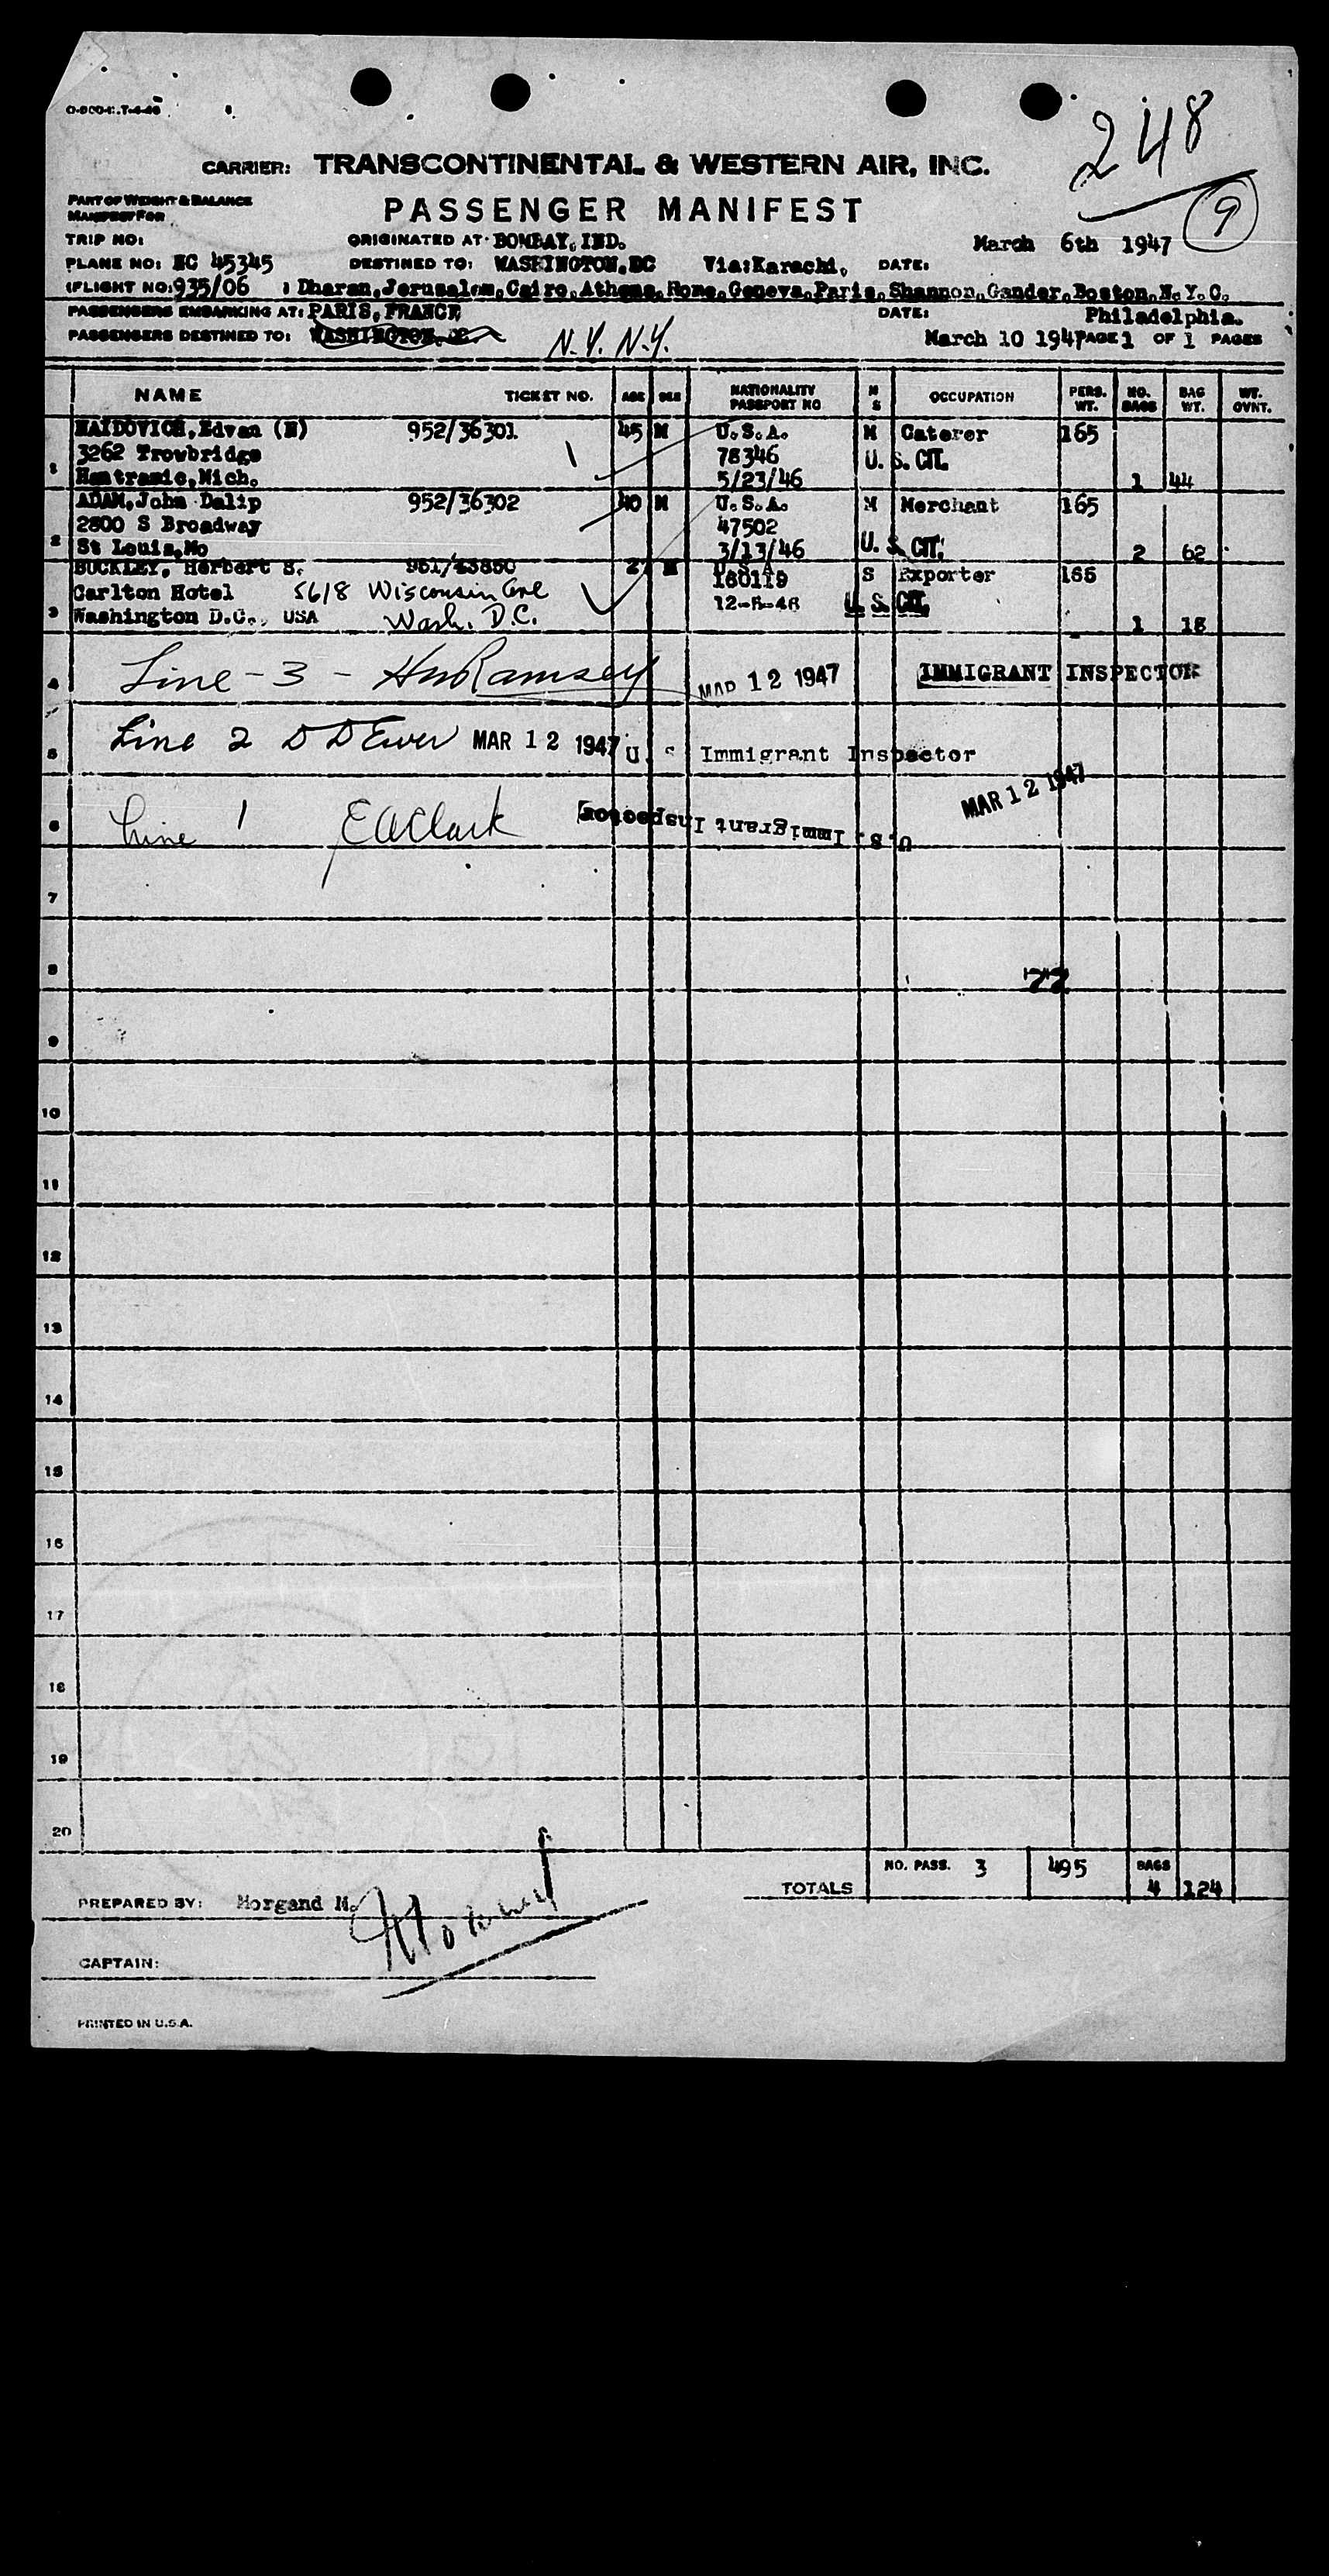 248
9
CARRIER: TRANSCONTINENTAL & WESTERN AIR, INC.
PART OF WEIGHT & BALANCE
MANIFEST FOR
PASSENGER MANIFEST
TRIP NO: ORIGINATED AT: BOMBAY, IND. March 6th 1947
PLANE NO: NC 45345 DESTINED TO: WASHINGTON, DC Via: Karachi, DATE:
(FLIGHT NO: 935/06 : Dharan, Jerusalem, Cairo, Athens, Rome, Geneva, Paris, Shannon, Gander, Boston, N.Y.C.
PASSENGERS EMBARKING AT: PARIS, FRANCE DATE: Philadelphia.
PASSENGERS DESTINED TO: WASHINGTON N.Y. N.Y. March 10 1947 PAGE 1 OF 1 PAGES
NAME TICKET NO. AGE SEX NATIONALITY PASSPORT NO M S OCCUPATION PERS. WT. NO. BAGS BAG WT. WT. OVNT.
HAIDOVICH, Edvan (N) 952/36301 45 M U.S.A. M Caterer 165
3262 Trowbridge 78346 U.S. CIT.
1 Hamtramic, Mich. 5/23/46 1 44
ADAM, John Dalip 952/36302 40 M U.S.A. M Merchant 165
2800 S Broadway 47502
2 St Louis, Mo 3/13/46 U.S. CIT. 2 62
BUCKLEY, Herbert S. 951/43850 27 M U.S.A
Carlton Hotel 5618 Wisconsin Ave 160119 S Exporter 165
3 Washington D.C., USA Wash. D.C. 12-5-46 U.S. CIT. 1 18
4 Line - 3 - HW Ramsey MAR 12 1947 IMMIGRANT INSPECTOR
5 Line 2 D D Ewer MAR 12 1947 U. S Immigrant Inspector
6 Line 1 E A Clark U.S. Immigrant Inspector MAR 12 1947
7
8 77
9
10
11
12
13
14
15
16
17
18
19
20
TOTALS NO. PASS. 3 495 BAGS 4 124
PREPARED BY: Morgand M.
CAPTAIN:
PRINTED IN U.S.A.